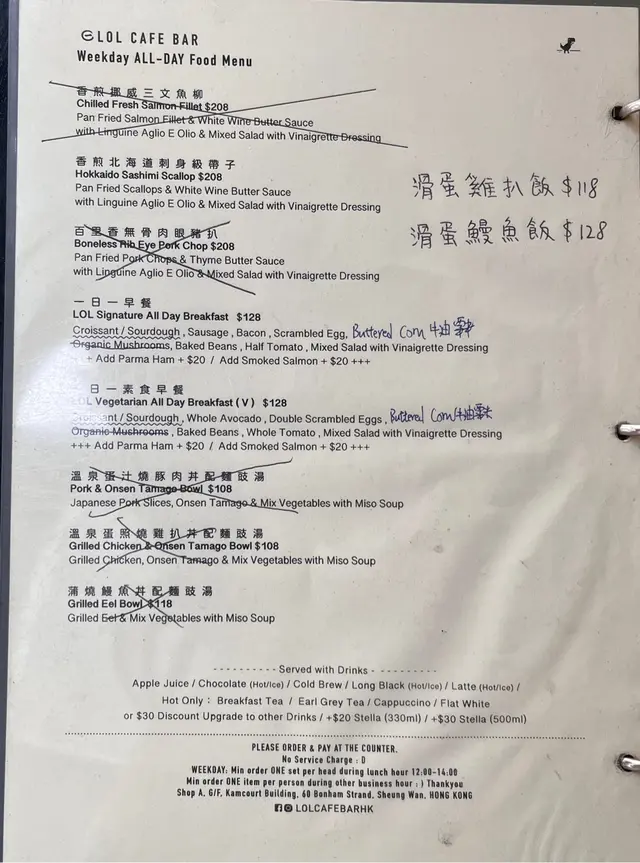 LOL CAFE BAR
Weekday ALL-DAY Food Menu
香煎挪威三文魚柳
Chilled Fresh Salmon Fillet $208
Pan Fried Salmon Fillet & White Wine Butter Sauce
with Linguine Aglio E Olio & Mixed Salad with Vinaigrette Dressing
香煎北海道刺身級帶子
Hokkaido Sashimi Scallop $208
Pan Fried Scallops & White Wine Butter Sauce
with Linguine Aglio E Olio & Mixed Salad with Vinaigrette Dressing
滑蛋雞扒飯 $118
滑蛋鰻魚飯 $128
百里香無骨肉眼豬扒
Boneless Rib Eye Pork Chop $208
Pan Fried Pork Chops & Thyme Butter Sauce
with Linguine Aglio E Olio & Mixed Salad with Vinaigrette Dressing
一日一早餐
LOL Signature All Day Breakfast $128
Croissant / Sourdough , Sausage , Bacon , Scrambled Egg, Buttered Corn 牛油粟米
Organic Mushrooms, Baked Beans , Half Tomato , Mixed Salad with Vinaigrette Dressing
+ Add Parma Ham + $20 / Add Smoked Salmon + $20 +++
日一素食早餐
LOL Vegetarian All Day Breakfast ( V ) $128
Croissant / Sourdough , Whole Avocado , Double Scrambled Eggs , Buttered Corn 牛油粟米
Organic Mushrooms , Baked Beans , Whole Tomato , Mixed Salad with Vinaigrette Dressing
+++ Add Parma Ham + $20 / Add Smoked Salmon + $20 +++
溫泉蛋汁燒豚肉丼配麵豉湯
Pork & Onsen Tamago Bowl $108
Japanese Pork Slices, Onsen Tamago & Mix Vegetables with Miso Soup
溫泉蛋照燒雞扒丼配麵豉湯
Grilled Chicken & Onsen Tamago Bowl $108
Grilled Chicken, Onsen Tamago & Mix Vegetables with Miso Soup
蒲燒鰻魚丼配麵豉湯
Grilled Eel Bowl $118
Grilled Eel & Mix Vegetables with Miso Soup
- - - - - - - - - - Served with Drinks - - - - - - - - - -
Apple Juice / Chocolate (Hot/Ice) / Cold Brew / Long Black (Hot/Ice) / Latte (Hot/Ice) /
Hot Only : Breakfast Tea / Earl Grey Tea / Cappuccino / Flat White
or $30 Discount Upgrade to other Drinks / +$20 Stella (330ml) / +$30 Stella (500ml)
PLEASE ORDER & PAY AT THE COUNTER.
No Service Charge : D
WEEKDAY: Min order ONE set per head during lunch hour 12:00-14:00
Min order ONE item per person during other business hour : ) Thankyou
Shop A, G/F, Kamcourt Building, 60 Bonham Strand, Sheung Wan, HONG KONG
LOLCAFEBARHK